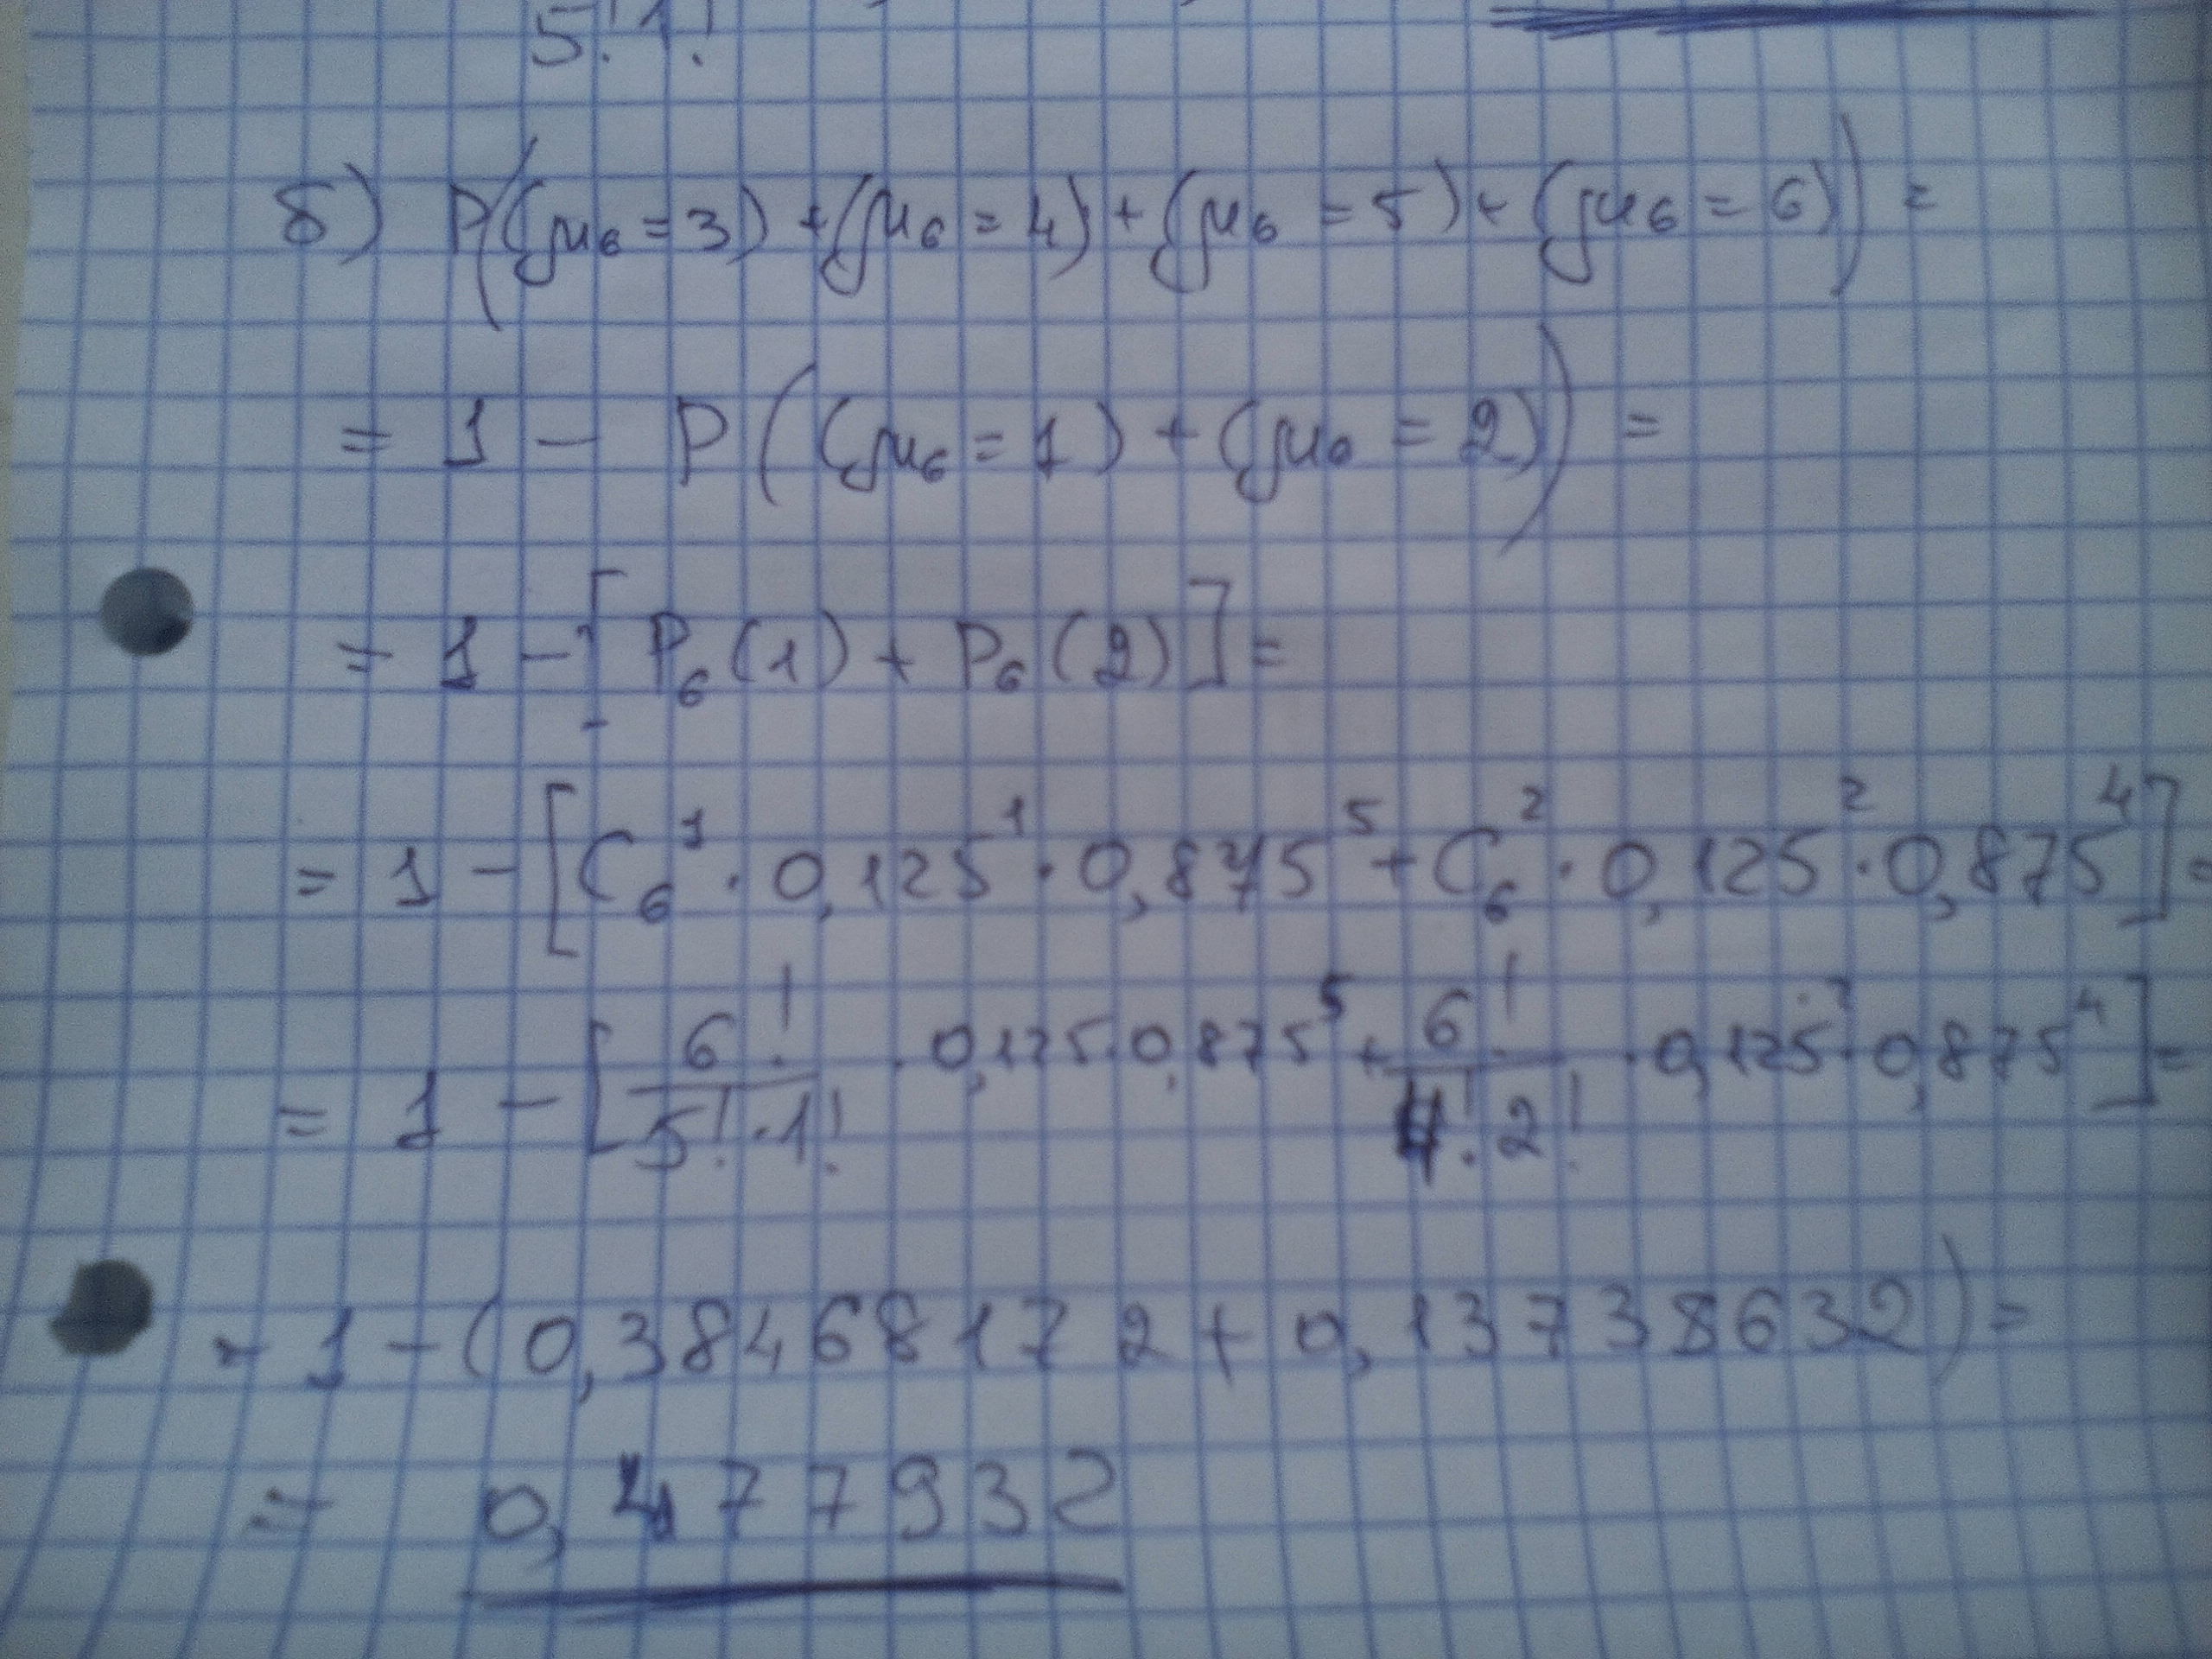 5! 1!
б) P((μ₆ = 3) + (μ₆ = 4) + (μ₆ = 5) + (μ₆ = 6)) =
= 1 - P((μ₆ = 1) + (μ₆ = 2)) =
= 1 - [P₆(1) + P₆(2)] =
= 1 - [C₆¹ · 0,125¹ · 0,875⁵ + C₆² · 0,125² · 0,875⁴] =
= 1 - [6!/(5! · 1!) · 0,125 · 0,875⁵ + 6!/(4! · 2!) · 0,125² · 0,875⁴] =
= 1 - (0,384681172 + 0,13738632) =
= 0,477932